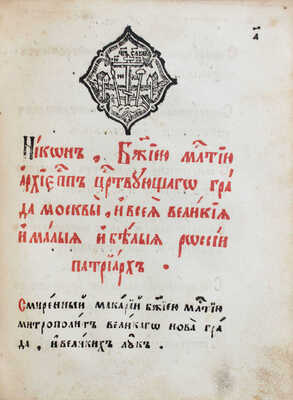 а҃
Нікѡнъ, Бж҃їею млⷭ҇тїю
архїеп҃пъ црⷭ҇твующагѡ гра
да москвы, и всеѧ великїѧ
и малыѧ и бѣлыѧ рѡссїи
патрїархъ.
Смиренный макарїй бж҃їею млⷭ҇тїю
митрополитъ великагѡ нова гра
да, и великихъ лукъ.